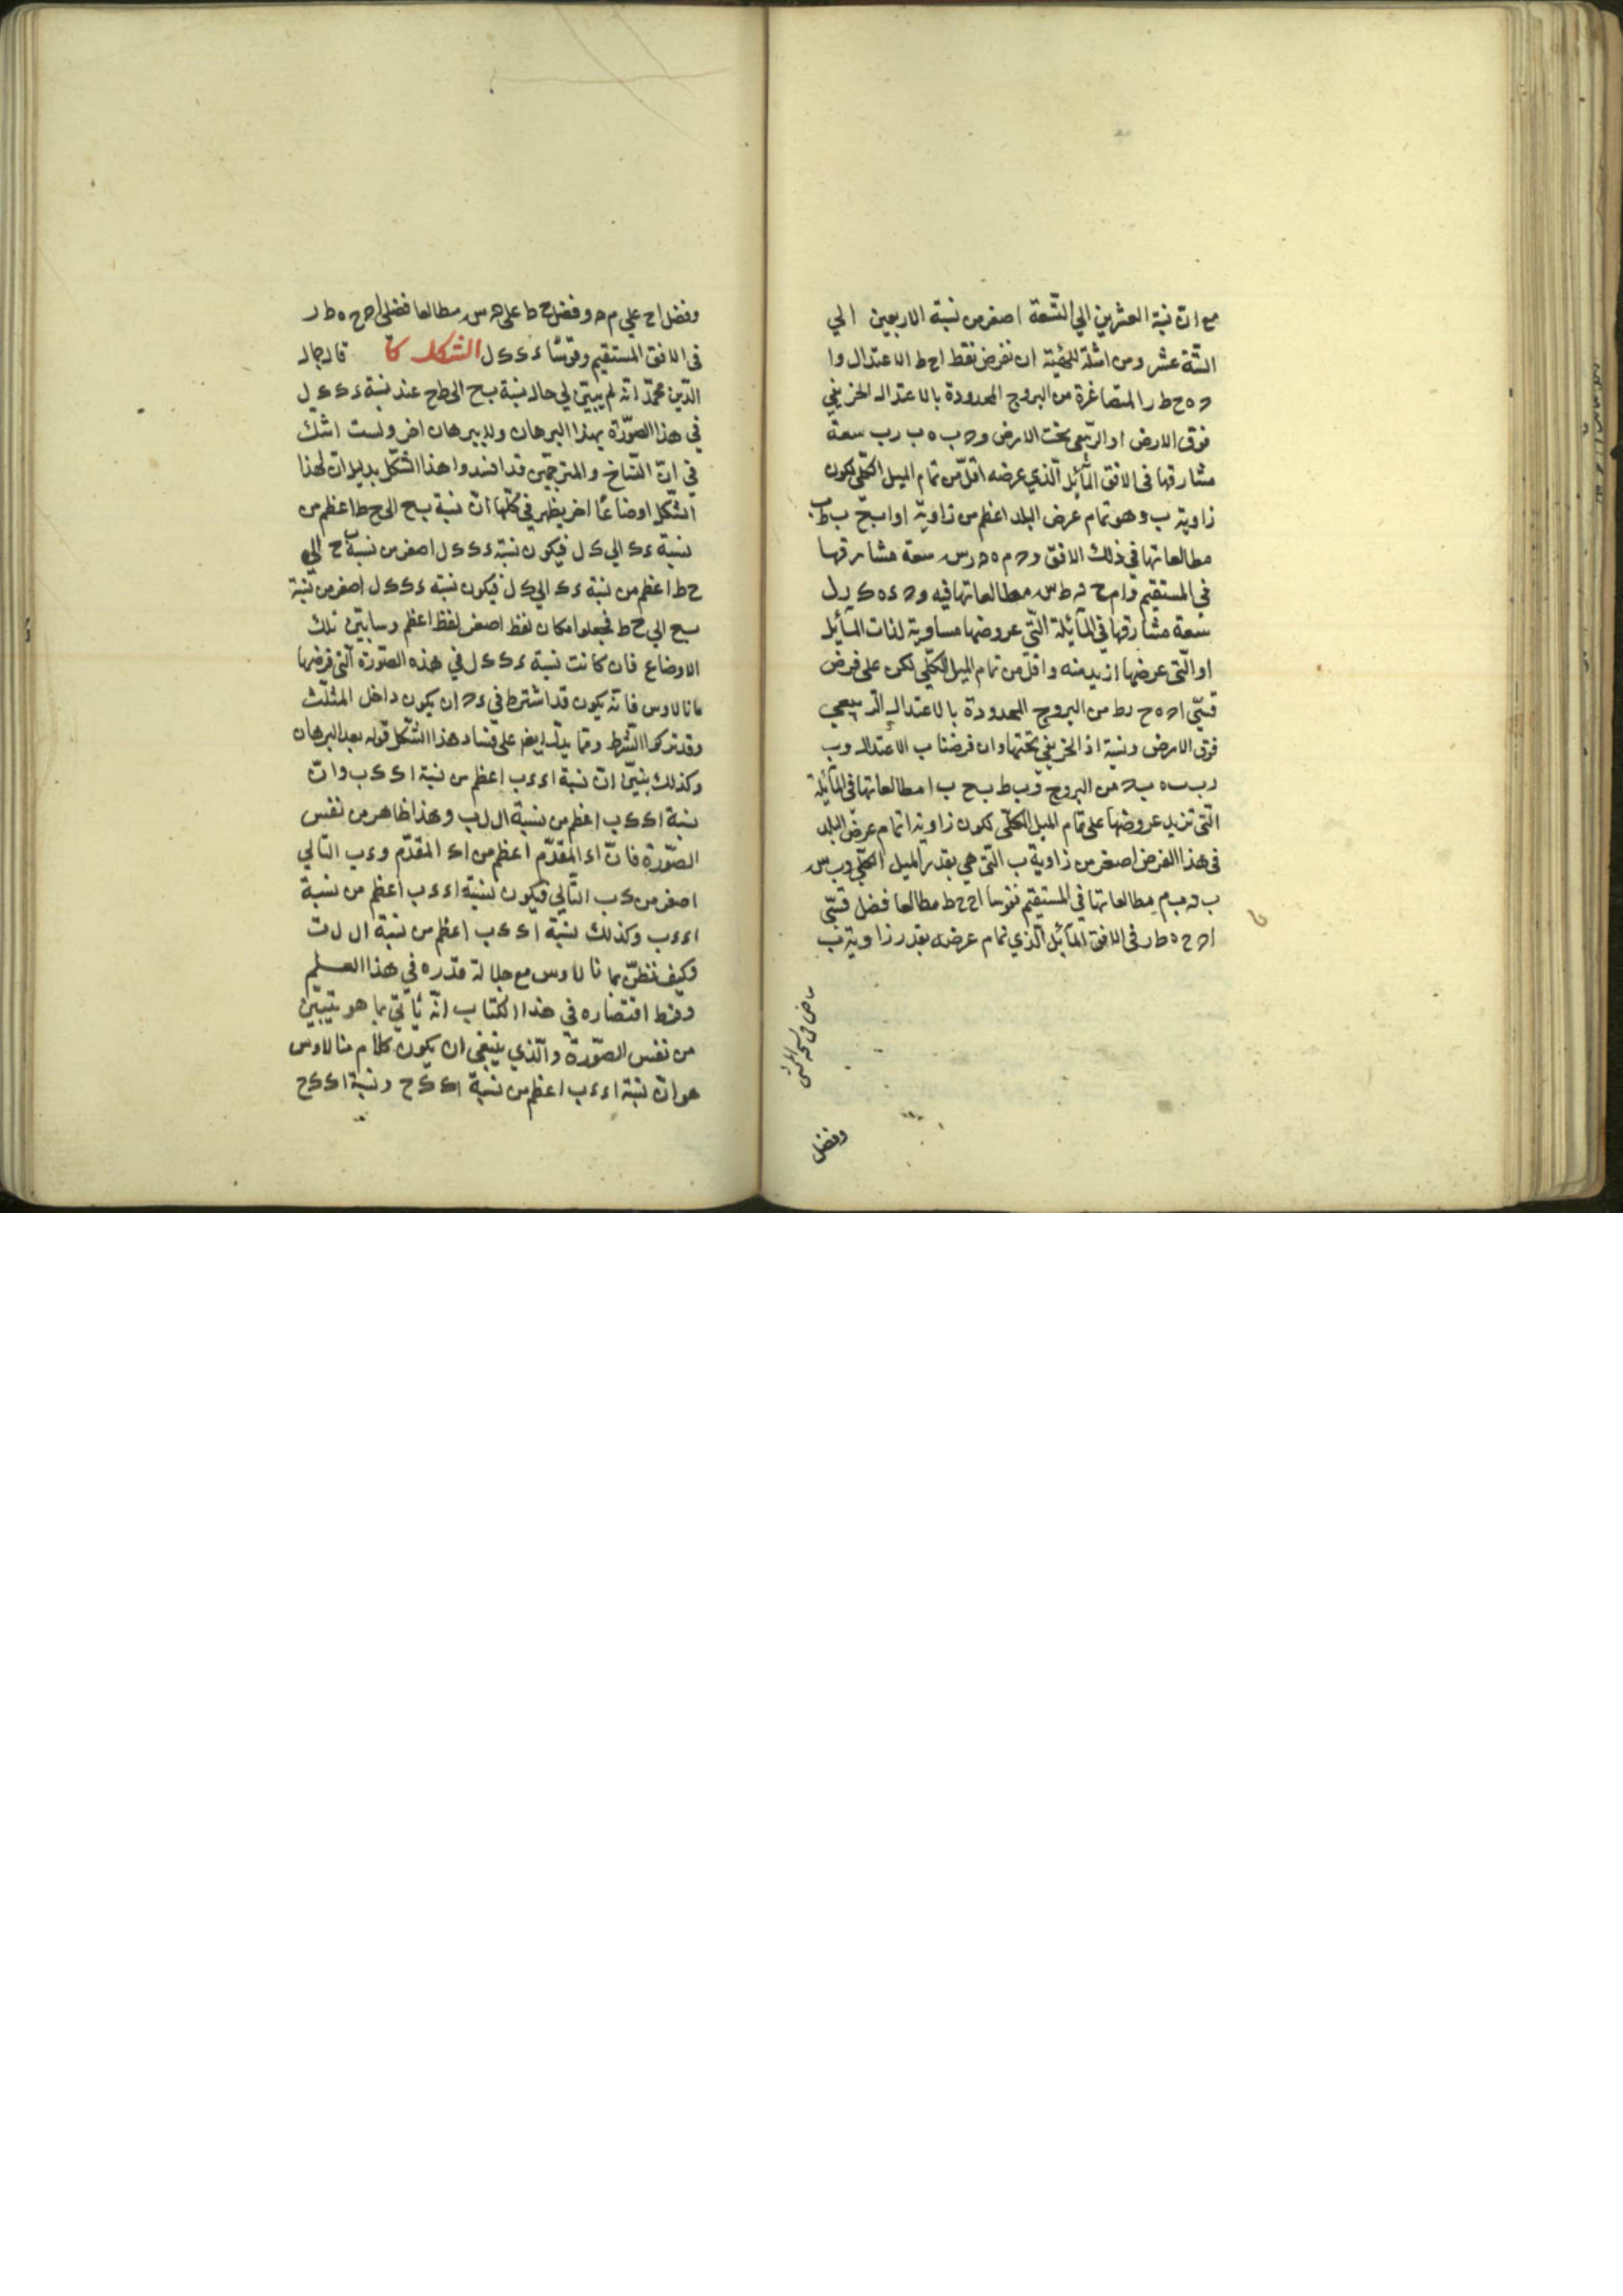 مع ان نسبة العشرين الي التسعة اصغر من نسبة الاربعين الي
الستة عشر ومن امثلة الهيئة ان نفرض نقط ا ح ط الاعتدال وا
ه ح ط ر المتصاغرة من البروج المحدودة بالاعتدال الخريفي
فوق الارض او الربيعي تحت الارض و ب ه ب ر ب سعة
مشارقها في الافق المائل الذي عرضه اقل من تمام الميل الكلي لكون
زاوية ب وهو تمام عرض البلد اعظم من زاوية ا و ا ب ح ب ط ب
مطالعاتها في ذلك الافق و م ه ر س سعة مشارقها
في المستقيم و ا م ح ط س مطالعاتها فيه و ء ه ك ر ل
سعة مشارقها في المائلة التي عروضها مساوية لذات المائل
او التي عرضها ازيد منه واقل من تمام الميل الكلي لكن علي فرض
قسي ا ه ح ر ط من البروج المحدودة بالاعتدال الربيعي
فوق الارض ونسبة اذ الخريفي تحتها وان فرضنا ب الاعتدال و ب
ر ب ه ب من البروج و ب ط ب ح ب ا مطالعاتها في المائلة
التي تزيد عروضها علي تمام الميل الكلي لكون زاوية ا تمام عرض البلد
في هذا الفرض اصغر من زاوية ب التي هي بقدر الميل الكلي و ب س
ب ن ب م مطالعاتها في المستقيم فقوسا ا ح ح ط مطالعا فضل قسي
ا ه ح ه ط ر في الافق المائل الذي تمام عرضه بقدر زاوية ب
وفضل
وفضل ا ح علي م ن وفضل ح ط علي ن س مطالعا فضلي ا ه ح ه ط ر
في الافق المستقيم وقوسا ء ك ك ل الشكل كا قال جمال
الدين محمد انه لم يتبين لي حال نسبة ب ح الي ط ح عند نسبة ء ك ك ل
في هذا الصورة بهذا البرهان ولا ببرهان اخر ولست اشك
في ان النساخ والمترجمين قد افسدوا هذا الشكل بدليل ان لهذا
الشكل اوضاعا اخر يظهر في كلها ان نسبة ب ح الي ح ط اعظم من
نسبة ء ك الي ك ل فيكون نسبة ء ك ك ل اصغر من نسبة ب ح الي
ح ط اعظم من نسبة ء ك الي ك ل فيكون نسبة ء ك ك ل اصغر من نسبة
ب ح الي ح ط فجعلوا مكان لفظ اصغر لفظ اعظم وسابين تلك
الاوضاع فان كانت نسبة ء ك ك ل في هذه الصورة التي فرضها
مانالاوس فانه يكون قد اشترط في ء ه ان يكون داخل المثلث
وقد تركوا الشرط ومما يدل ايضا علي فساد هذا الشكل قوله بعد البرهان
وكذلك بنيين ان نسبة ا ء ء ب اعظم من نسبة ا ك ك ب وان
نسبة ا ك ك ب اعظم من نسبة ا ل ل ب وهذا ظاهر من نفس
الصورة فان ا ء المقدم اعظم من ا ك المقدم و ء ب التالي
اصغر من ك ب التالي فيكون نسبة ا ء ء ب اعظم من نسبة
ا ء ء ب وكذلك نسبة ا ك ك ب اعظم من نسبة ا ل ل ب
فكيف نظن بمانالاوس مع جلالة قدره في هذا العلم
وفرط اقتصاره في هذا الكتاب انه ياتي بما هو يتبين
من نفس الصورة والذي ينبغي ان يكون كلام منالاوس
هو ان نسبة ا ء ء ب اعظم من نسبة ا ك ك ح ونسبة ا ك ك ح